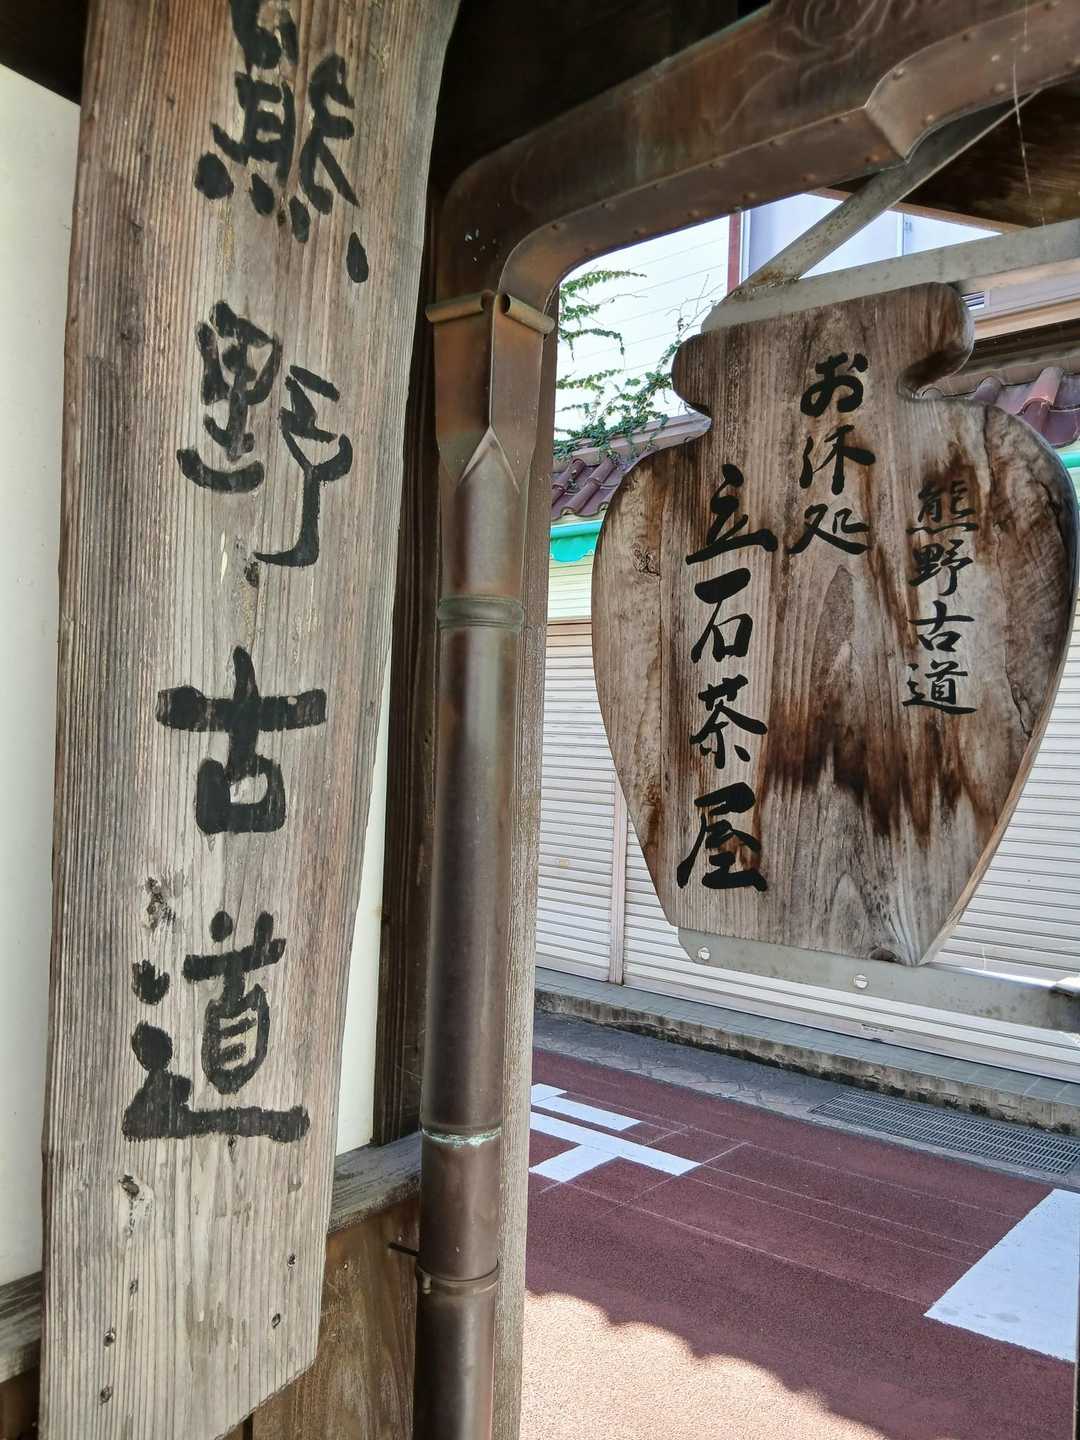 熊野古道
熊野古道
お休処
立石茶屋